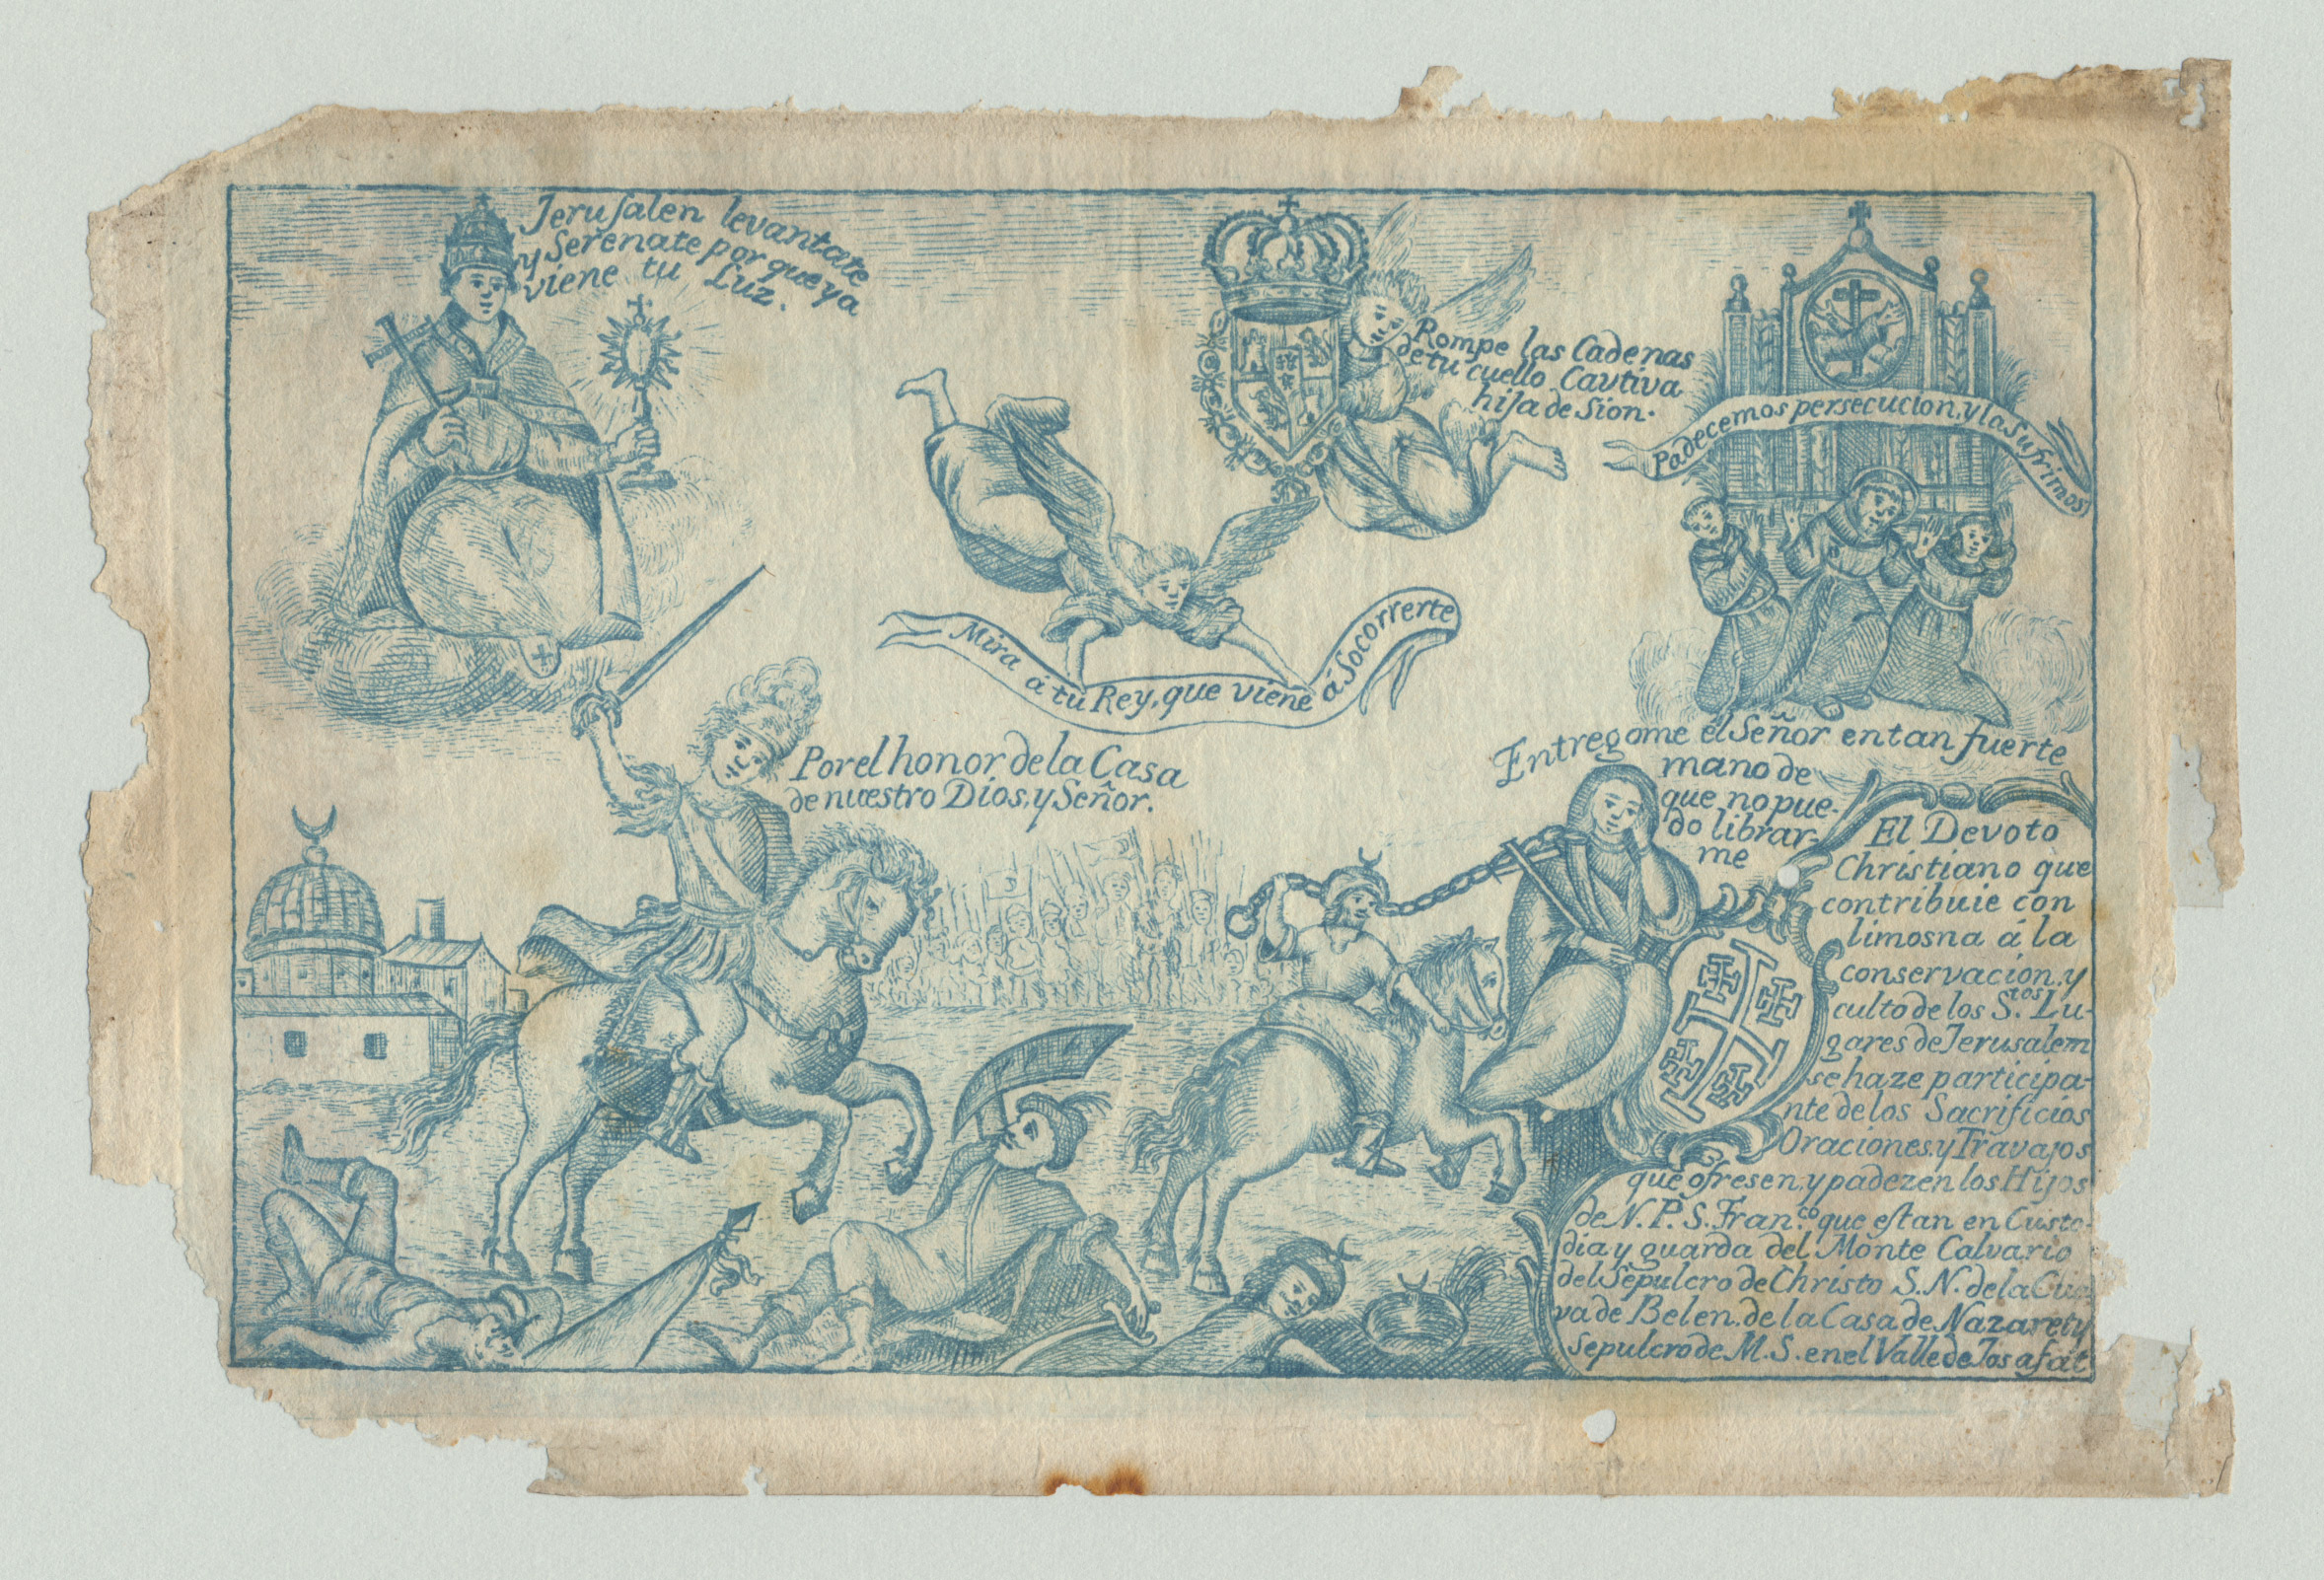 Jerusalen levantate
y Serenate por que ya
viene tu Luz.
Rompe las Cadenas
de tu cuello Cautiva
hija de Sion.
Padecemos persecucion, y la Sufrimos
Mira á tu Rey, que viene á Socorrerte
Por el honor de la Casa
de nuestro Dios, y Señor.
Entregome el Señor en tan fuerte
mano de
que no pue-
do librar-
me
El Devoto
Christiano que
contribuie con
limosna á la
conservacion, y
culto de los S.tos Lu-
gares de Jerusalem
se haze participa-
nte de los Sacrificios
Oraciones, y Travajos
que ofresen, y padezen los Hijos
de N. P. S. Fran.co que estan en Custo-
dia y guarda del Monte Calvario
del Sepulcro de Christo S. N. de la Cue
va de Belen. de la Casa de Nazaret y
Sepulcro de M. S. en el Valle de Josafat